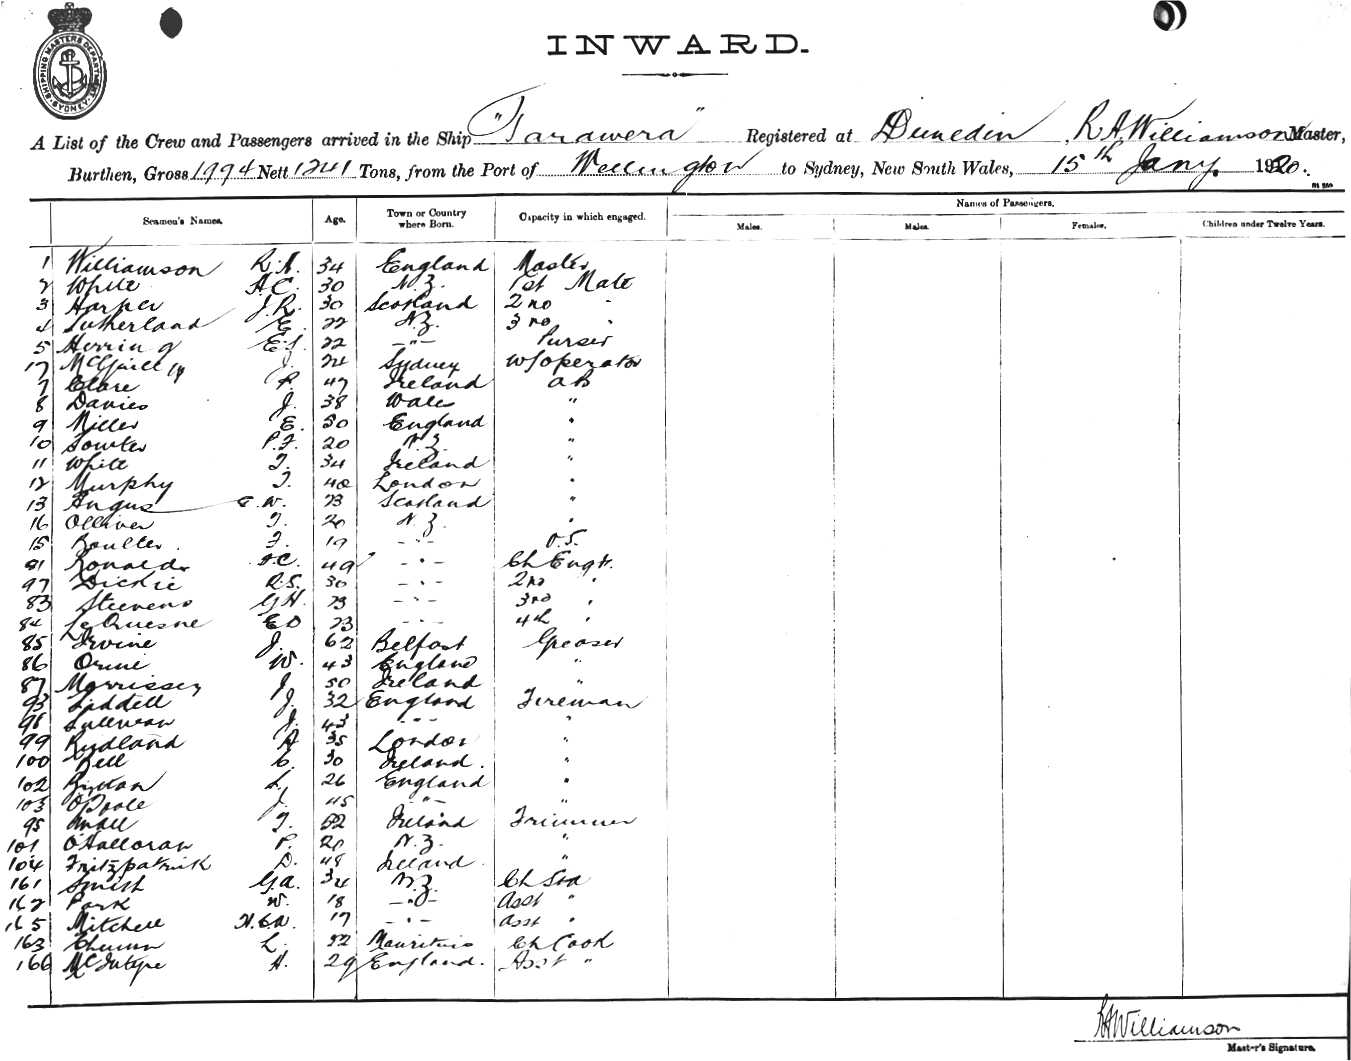 SHIPPING MASTERS DEPARTMENT SYDNEY
INWARD.
A List of the Crew and Passengers arrived in the Ship "Tarawera" Registered at Dunedin, R A Williamson Master,
Burthen, Gross 1994 Nett 1241 Tons, from the Port of Wellington to Sydney, New South Wales, 15th Jany. 1920.
Names of Passengers.
Seamen's Names. Age. Town or Country where Born. Capacity in which engaged. Males. Males. Females. Children under Twelve Years.
1 Williamson R.A. 34 England Master
2 White A.C. 30 N.Z. 1st Mate
3 Harper J.R. 30 Scotland 2nd "
4 Sutherland E. 22 N.Z. 3rd "
5 Herring E.J. 22 -"- Purser
17 J. 24 Sydney W/operator
7 Clare P. 47 Ireland AB
8 Davies J. 38 Wales "
9 Miller E. 50 England "
10 P.F. 20 N.Z. "
11 White T. 34 Ireland "
12 Murphy T. 40 London "
13 Angus G.W. 23 Scotland "
16 Olliver T. 20 N.Z. "
15 Boulter F. 19 -"- O.S.
81 Ronalds 49 -"- Ch Engr.
97 Dickie R.S. 30 -"- 2nd "
83 Steevens G.H. 23 -"- 3rd "
84 Le Quesne E D 23 -"- 4th "
85 Irvine J. 62 Belfast Greaser
86 Orme W. 43 England "
87 Morrissey J. 50 Ireland "
93 Liddell J. 32 England Fireman
98 Sullivan J. 43 -"- "
99 Rudland A 35 London "
100 Bell C. 30 Ireland. "
102 L. 26 England "
103 O'Toole J. 45 -"- "
95 T. 52 Ireland Trimmer
101 O'Halloran P. 20 N.Z. "
104 Fritzpatrick D. 48 Ireland "
161 Smith G.A. 34 N.Z. Ch Std
162 Park W. 18 -"- Asst "
165 Mitchell H.C.A. 17 -"- Asst "
163 L. 52 Mauritius Ch Cook
166 McIntyre A. 29 England. Asst "
R A Williamson
Master's Signature.